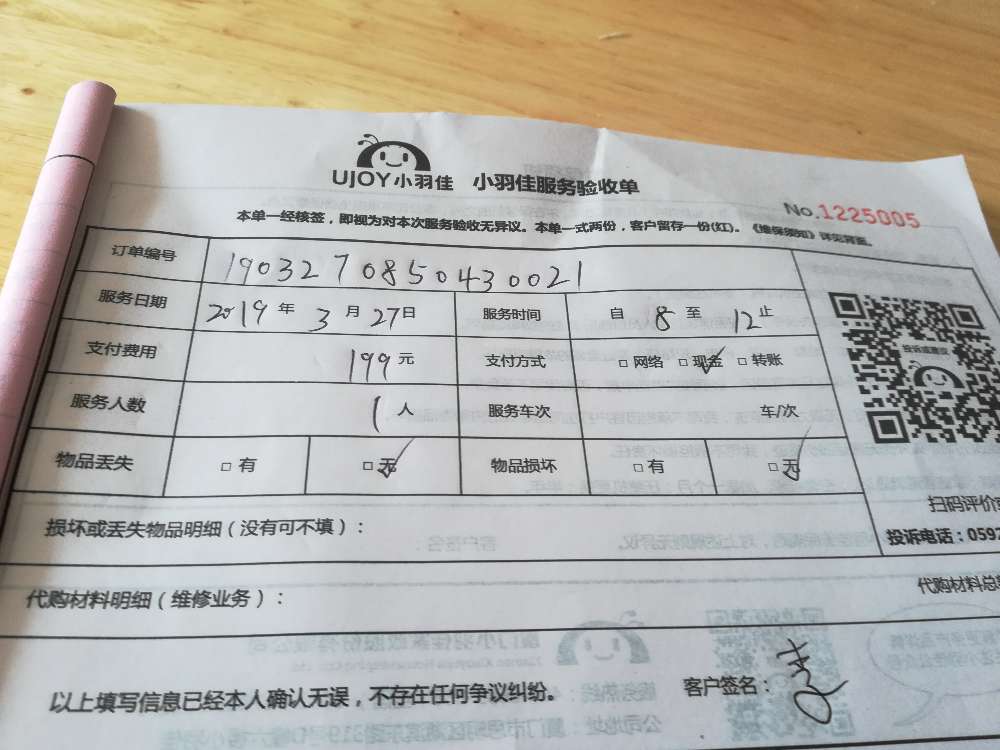 UJOY小羽佳 小羽佳服务验收单
No.1225005
本单一经核签，即视为对本次服务验收无异议。本单一式两份，客户留存一份(红)。《维保须知》详见背面。
订单编号 190327085043​0021
服务日期 2019年3月27日 服务时间 自8至12止
支付费用 199元 支付方式 □网络 □现金 □转账
服务人数 1人 服务车次 车/次
物品丢失 □有 □无 物品损坏 □有 □无
投诉或建议
扫码评价
投诉电话：0592
损坏或丢失物品明细（没有可不填）：
代购材料明细（维修业务）： 代购材料总
以上填写信息已经本人确认无误，不存在任何争议纠纷。 客户签名：